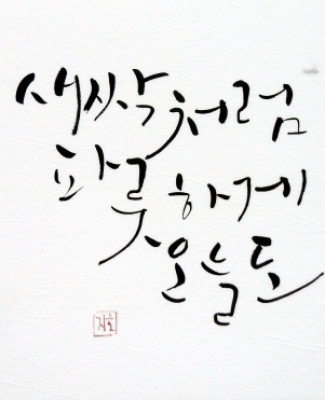 새싹처럼
파릇하게
오늘도